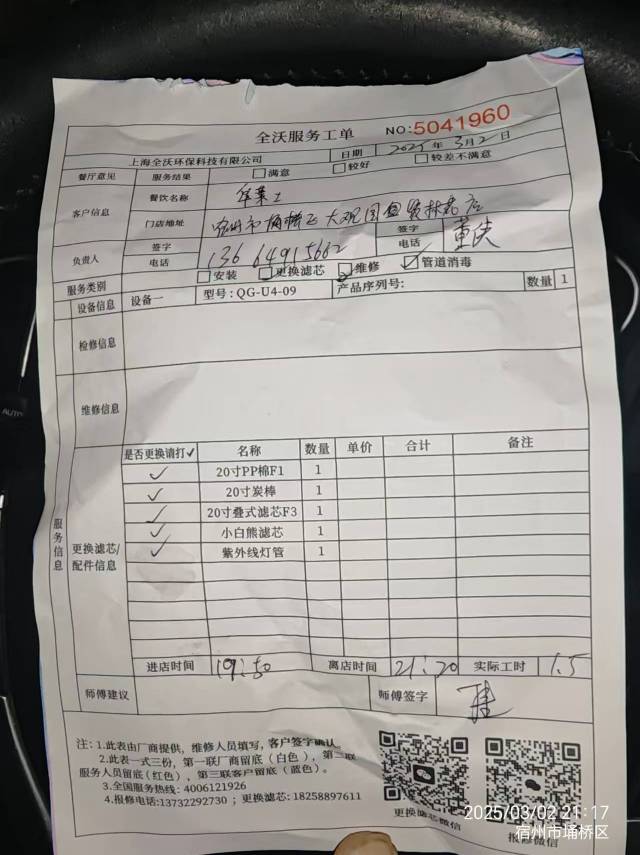 全沃服务工单 NO:5041960
上海全沃环保科技有限公司 日期 2025年3月2日
餐厅意见 服务结果 满意 较好 较差不满意
客户信息 餐饮名称 华莱士
门店地址 宿州市埇桥区大观园
负责人 签字 电话 13664915662 签字 电话
服务类别 安装 更换滤芯 维修 管道消毒
设备信息 设备一 型号:QG-U4-09 产品序列号: 数量 1
检修信息
维修信息
服务信息
更换滤芯/配件信息
是否更换请打✓ 名称 数量 单价 合计 备注
✓ 20寸PP棉F1 1
✓ 20寸炭棒 1
✓ 20寸叠式滤芯F3 1
✓ 小白熊滤芯 1
✓ 紫外线灯管 1
进店时间 19:50 离店时间 21:20 实际工时 1.5
师傅建议 师傅签字
注:1.此表由厂商提供，维修人员填写，客户签字确认。
2.此表一式三份，第一联厂商留底（白色），第二联
服务人员留底(红色)，第三联客户留底（蓝色）。
3.全国服务热线: 4006121926
4.报修电话:13732292730 ; 更换滤芯: 18258897611
更换滤芯微信
报修微信
2025/03/02 21:17
宿州市埇桥区
AUTO